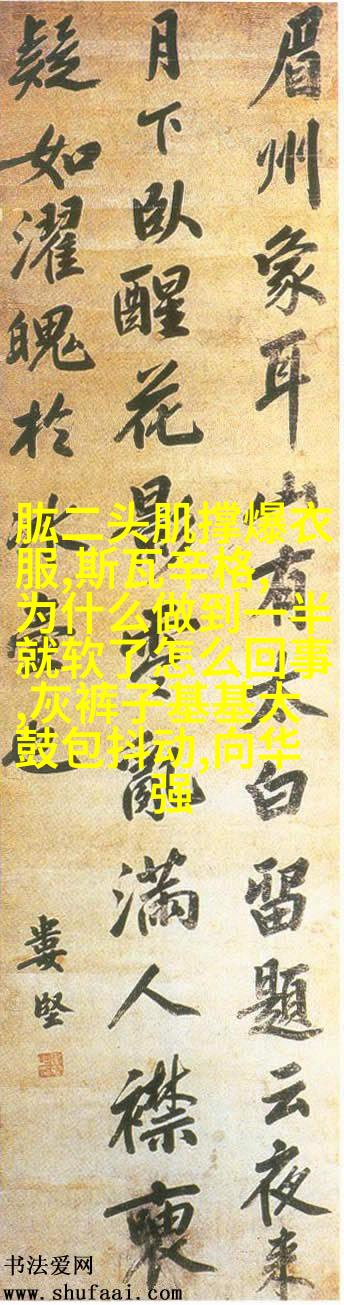 眉州象耳山有太白留題云夜來
月下臥醒花影零亂滿人襟褏
疑如濯魄於冰壺也
婁堅
肱二头肌撑爆衣
服,斯瓦辛格,
为什么做到一半
就软了怎么回事
,灰裤子基基大
鼓包抖动,向华
强
书法爱网
www.shufaai.com